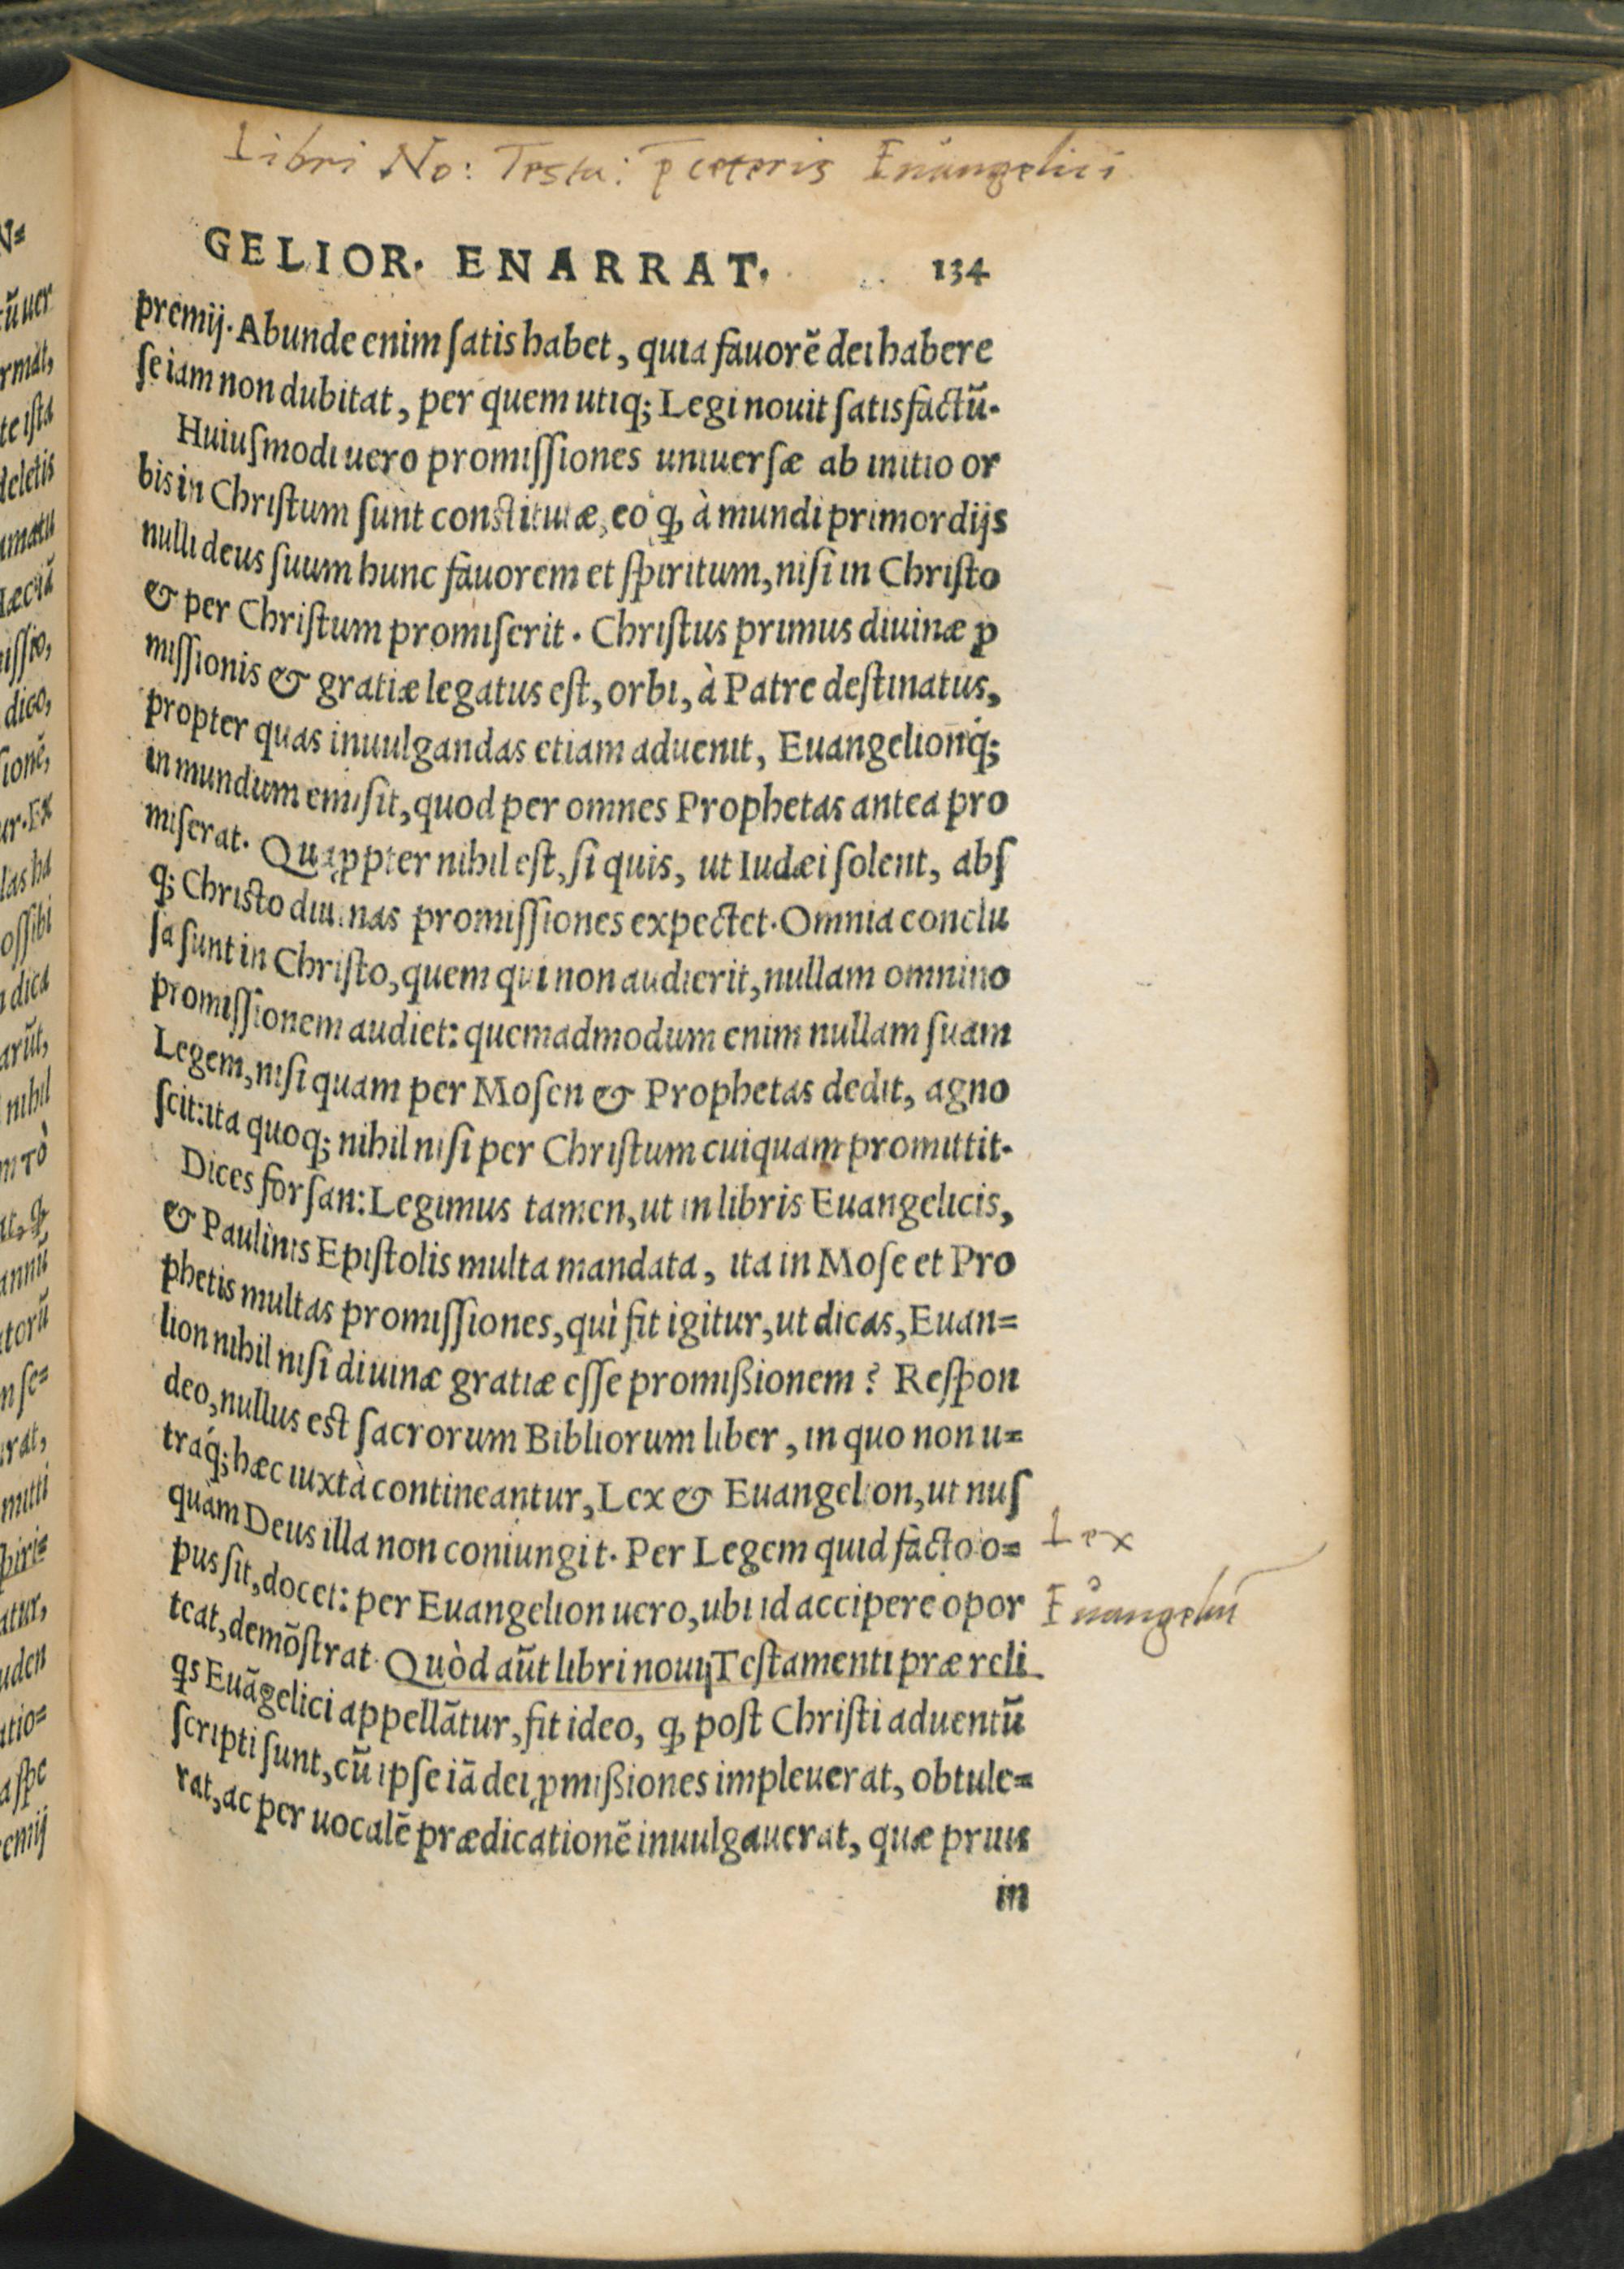 Libri No: Testa: p̄ ceteris Euangelici
GELIOR. ENARRAT. 134
premij. Abunde enim ſatis habet, quia fauorẽ dei habere
ſe iam non dubitat, per quem utiq; Legi nouit ſatisfactũ.
Huiuſmodi uero promiſſiones uniuerſæ ab initio or
bis in Chriſtum ſunt conſtitutæ, eo ꝙ à mundi primordijs
nulli deus ſuum hunc fauorem et ſpiritum, niſi in Chriſto
& per Chriſtum promiſerit. Chriſtus primus diuinæ ꝓ
miſſionis & gratiæ legatus eſt, orbi, à Patre deſtinatus,
propter quas inuulgandas etiam aduenit, Euangelionq́;
in mundum emiſit, quod per omnes Prophetas antea pro
miſerat. Quaꝓpter nihil eſt, ſi quis, ut Iudæi ſolent, abſ
q; Chriſto diuinas promiſſiones expectet. Omnia conclu
ſa ſunt in Chriſto, quem qui non audierit, nullam omnino
promiſſionem audiet: quemadmodum enim nullam ſuam
Legem, niſi quam per Moſen & Prophetas dedit, agno
ſcit: ita quoq; nihil niſi per Chriſtum cuiquam promittit.
Dices forſan: Legimus tamen, ut in libris Euangelicis,
& Paulinis Epiſtolis multa mandata, ita in Moſe et Pro
phetis multas promiſſiones, quì fit igitur, ut dicas, Euan=
lion nihil niſi diuinæ gratiæ eſſe promißionem? Reſpon
deo, nullus est ſacrorum Bibliorum liber, in quo non u=
traq́; hæc iuxtà contineantur, Lex & Euangelion, ut nuſ
quàm Deus illa non coniungit. Per Legem quid facto o=
Lex
pus ſit, docet: per Euangelion uero, ubi id accipere opor
Euangeliũ
teat, demõſtrat. Quòd aũt libri noui Teſtamenti præ reli
qs Euãgelici appellãtur, fit ideo, ꝙ poſt Chriſti aduentũ
ſcripti ſunt, cũ ipſe iã dei ꝓmißiones impleuerat, obtule=
rat, ac per uocalẽ prædicationẽ inuulgauerat, quæ prius
in